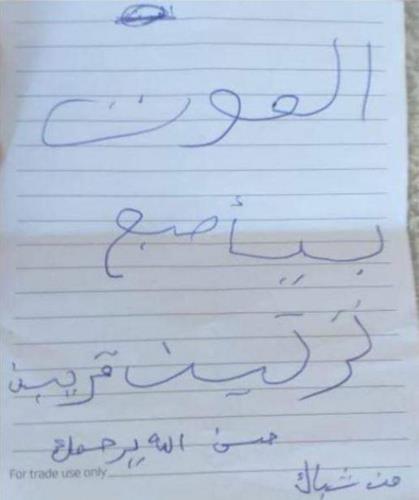 الموت
بيأصبع
قريبن
حسن الله يرحمك
For trade use only
من شباك